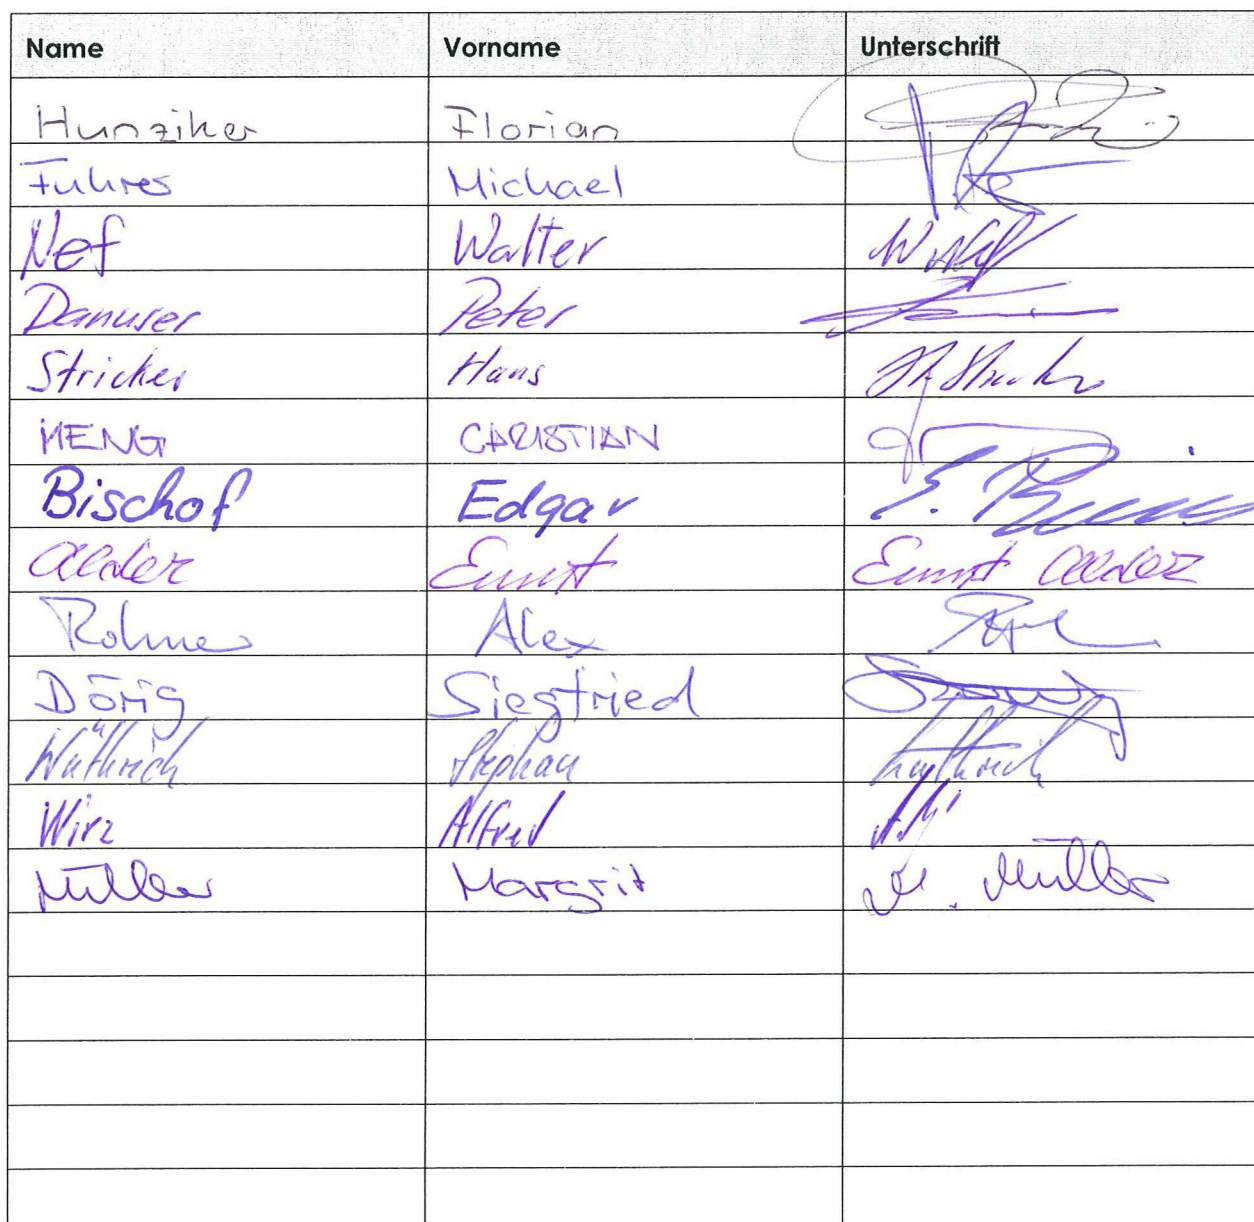 Name Vorname Unterschrift
Hunziker Florian
Fuhrer Michael
Nef Walter W. Nef
Danuser Peter
Stricker Hans
MENG CHRISTIAN
Bischof Edgar E.
Alder Ernst Ernst Alder
Rohner Alex
Dörig Siegfried
Wüthrich Stephan Wüthrich
Wirz Alfred
Müller Margrit M. Müller